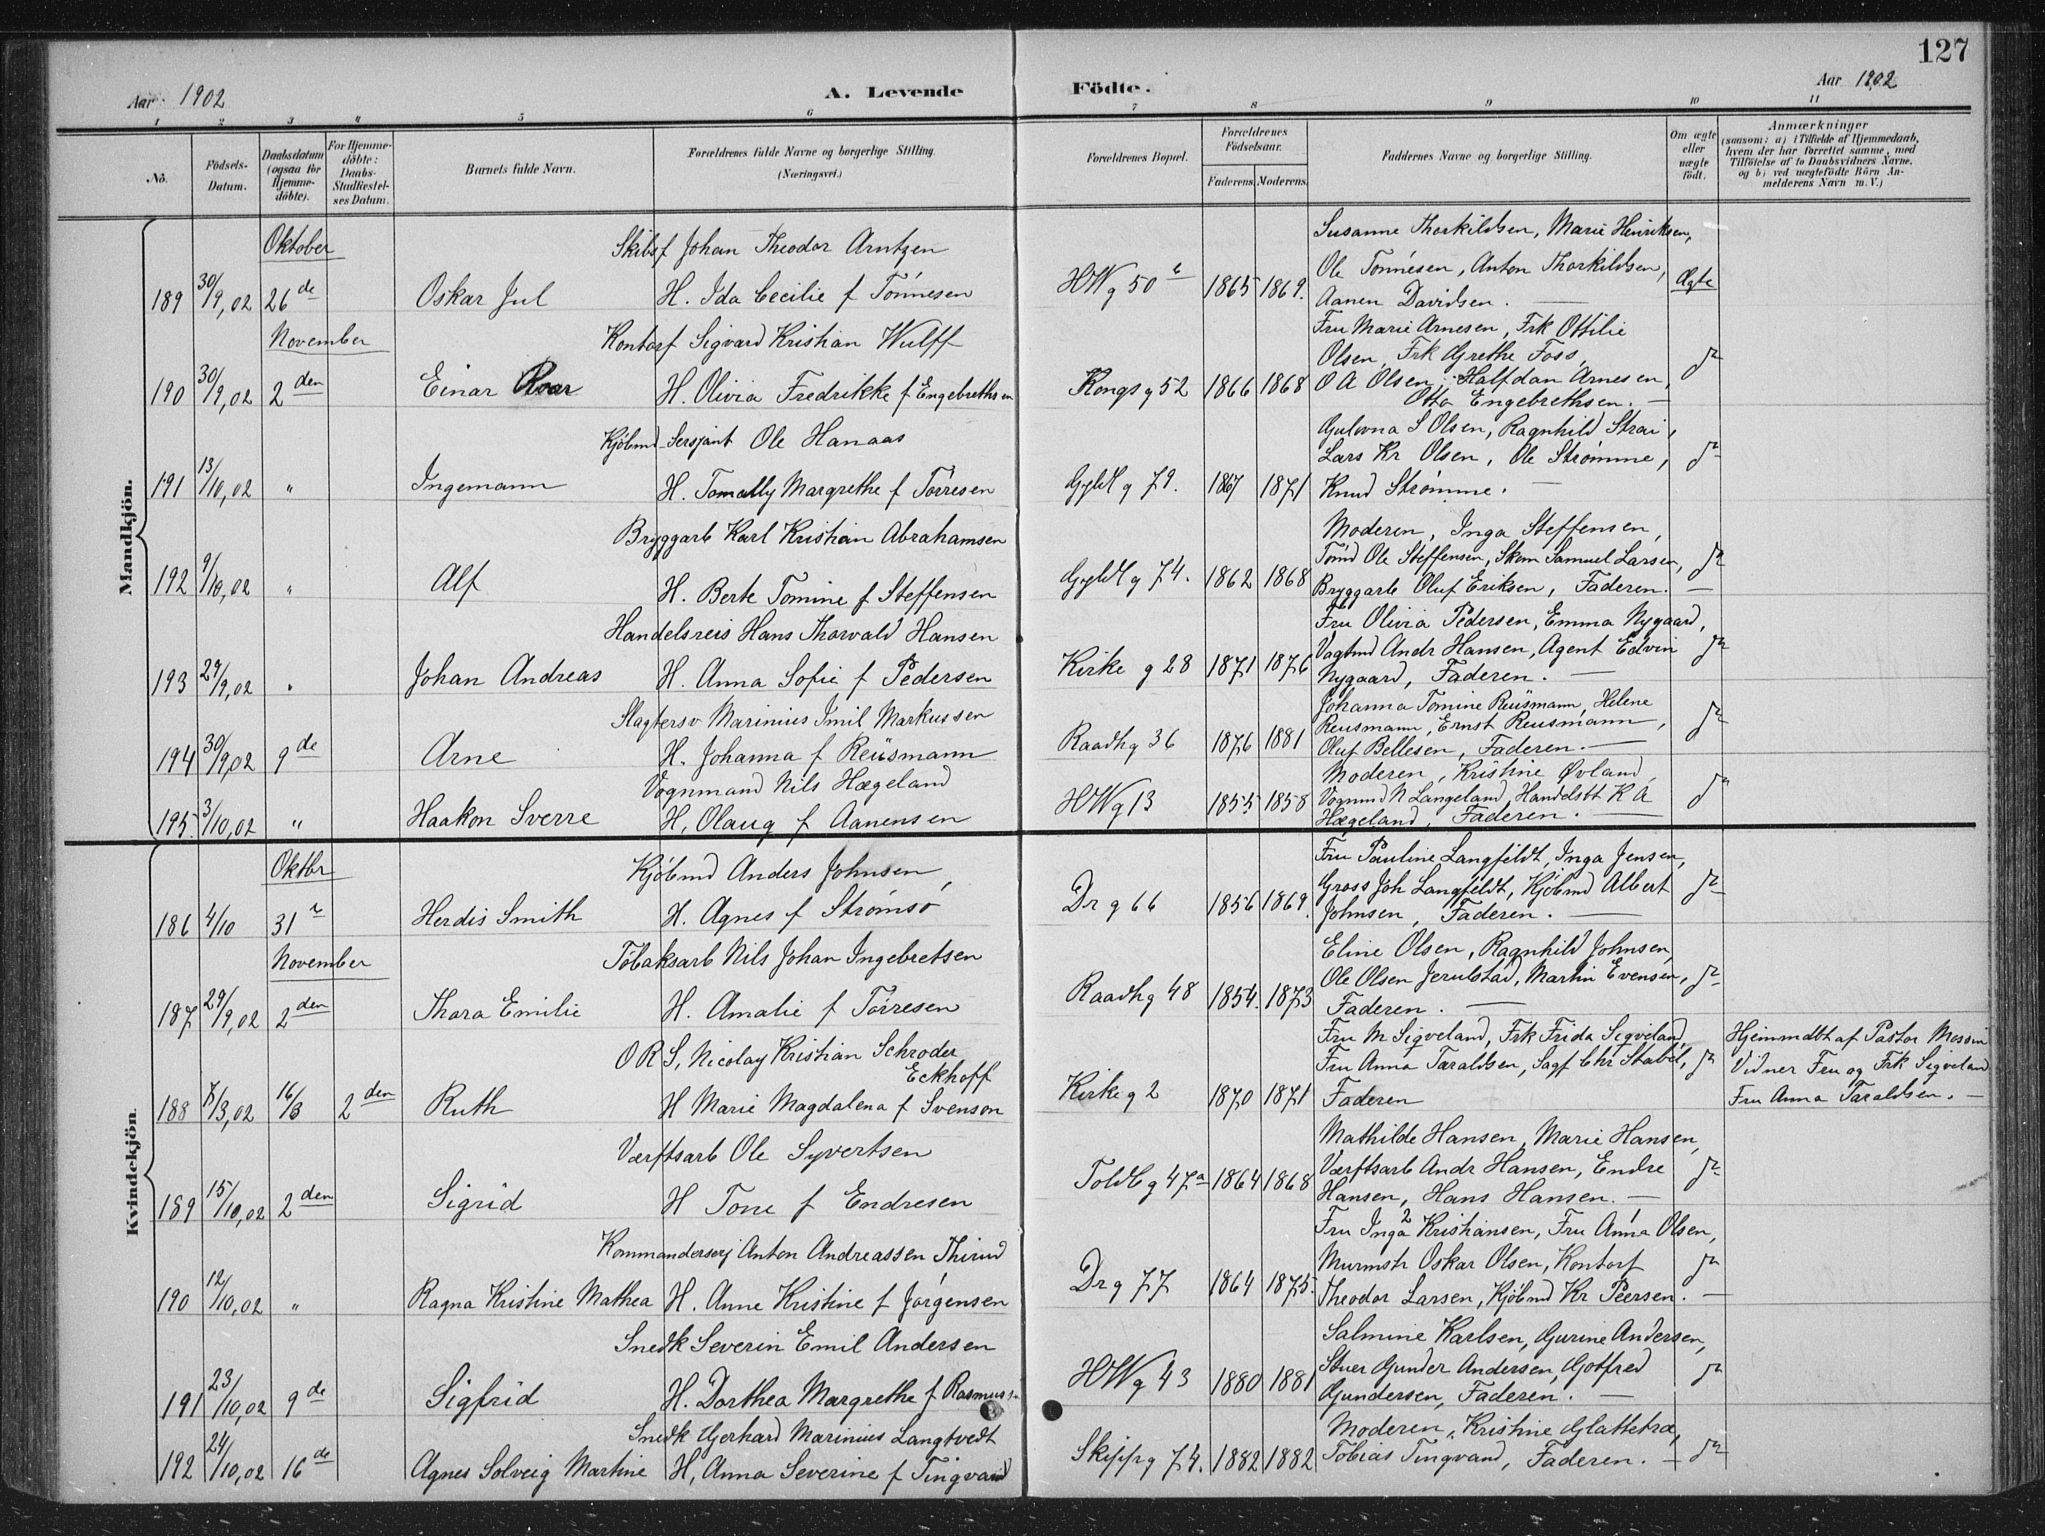 127
Aar 1902 A. Levende Födte. Aar 1902
1 2 3 4 5 6 7 8 9 10 11
No. Födsels-Datum. Daabsdatum (ogsaa for Hjemme-döbte). For Hjemme-döbte: Daabs-Stadfæstel-ses Datum. Barnets fulde Navn. Forældrenes fulde Navne og borgerlige Stilling. (Næringsvei.) Forældrenes Bopæl. Forældrenes Födselsaar. Faderens. Moderens. Faddernes Navne og borgerlige Stilling. Om ægte eller uægte födt. Anmærkninger (saasom: a) i Tilfælde af Hjemmedaab, hvem der har forrettet samme, med Tilföielse af to Daabsvidners Navne, og b) ved uægtefödte Börn An-melderens Navn m. V.)
Mandkjön.
Oktober Skibsf Johan Theodor Arntzen Susanne Thorkildsen, Marie Henriksen,
189 30/9,02 26de Oskar Jul H. Ida Cecilie f Tönnesen HWg 50 b 1865 1869. Ole Tonnesen, Anton Thorkildsen, Ægte
Aanen Davidsen. —
November Kontorf Sigvard Kristian Wulff Fru Marie Arnesen, Frk Ottilie
Olsen, Frk Grethe Foss,
190 30/9,02 2den Einar Roar H. Olivia Fredrikke f Engebrethsen Kongsg 52 1866 1868 O A Olsen, Halfdan Arnesen,
Otto Engebrethsen. —
Kjöbmd Sersjant Ole Hanaas Gulovna S Olsen, Ragnhild Strai,
Lars Kr Olsen, Ole Strømme,
191 13/10,02 " Ingemann H. Tomally Margrethe f Törresen Gyldlg 79. 1867 1871 Knud Strømme. —
Bryggarb Karl Kristian Abrahamsen Moderen, Inga Steffensen,
Tømd Ole Steffensen, Skom Samuel Larsen,
192 9/10,02 " Alf H. Berte Tomine f Steffensen Gyldlg 74. 1862 1868 Bryggarb Oluf Eriksen, Faderen. —
Handelsreis Hans Thorvald Hansen Fru Olivia Pedersen, Emma Nygaard,
Vagtmd Andr Hansen, Agent Edvin
193 29/9,02 " Johan Andreas H. Anna Sofie f Pedersen Kirkeg 28 1871 1876 Nygaard, Faderen. —
Slagtersv Marinius Imil Markussen Johanna Tomine Reusmann, Helene
Reusmann, Ernst Reusmann,
194 30/9,02 9de Arne H. Johanna f Reusmann Raadhg 36 1876 1881 Oluf Bellesen, Faderen. —
Vognmand Nils Hægeland Moderen, Kristine Øvland,
Vognmd N Langeland, Handelsbt K A
195. 3/10,02 " Haakon Sverre H. Olaug f Aanensen HWg 13 1855 1858 Hægeland, Faderen. —
Kvindekjön.
Oktbr Kjöbmd Anders Johnsen, Fru Pauline Langfeldt, Inga Jensen,
Gross Joh Langfeldt, Kjöbmd Albert
186 4/10 31 Herdis Smith H. Agnes f Strømsø Drg 66 1856 1869. Johnsen, Faderen. —
November Tobaksarb Nils Johan Ingebretsen Eline Olsen, Ragnhild Johnsen,
Ole Olsen Jerulstad, Martin Evensen,
187 29/9,02 2den Thora Emilie H. Amalie f Törresen Raadhg 48 1854. 1873 Faderen. —
O R S, Nicolay Kristian Schroder Eckhoff Fru M Sigveland, Frk Frida Sigveland, Hjemmdbt af Pastor Messin
Fru Anna Taraldsen, Sagf Chr Stabel, Vidner Fru og Frk Sigveland
188 7/3,02 16/3 2den Ruth H Marie Magdalena f Svenson Kirkeg 2 1870 1871 Faderen Fru Anna Taraldsen. —
Værftsarb Ole Syvertsen Mathilde Hansen, Marie Hansen,
Værftsarb Andr Hansen, Endre
189 15/10,02 2den Sigrid H Tone f Endresen Toldbg 47a 1864 1868 Hansen, Hans Hansen. —
Kommanderserj Anton Andreassen Thirud Fru Inga Kristiansen, Fru Anna Olsen,
Murmstr Oskar Olsen, Kontorf
190 12/10,02 " Ragna Kristine Mathea H. Anne Kristine f Jörgensen Drg 77 1864 1875. Theodor Larsen, Kjöbmd Kr Peersen. —
Snedk Severin Emil Andersen Salmine Karlsen, Gurine Andersen,
Stuer Gunder Andersen, Gotfred
191 23/10,02 9de Sigfrid H. Dorthea Margrethe f Rasmuss HWg 43 1880 1881 Gundersen, Faderen. —
Snedk Gerhard Marinius Langtvedt Moderen, Kristine Glattetræ,
192 24/10,02 16de Agnes Solveig Martine H, Anna Severine f Tingvand Skipprg 74. 1882 1882 Tobias Tingvand, Faderen. —